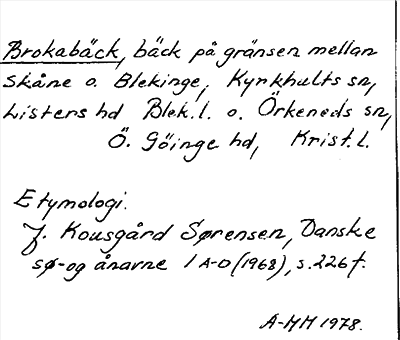 Brokabäck, bäck på gränsen mellan
Skåne o. Blekinge, Kyrkhults sn,
Listers hd Blek.l. o. Örkeneds sn,
Ö. Göinge hd, Krist.l.
Etymologi.
J. Kousgård Sørensen, Danske
sø- og ånavne 1 A-D (1968), s. 226 f.
A-MH 1978.